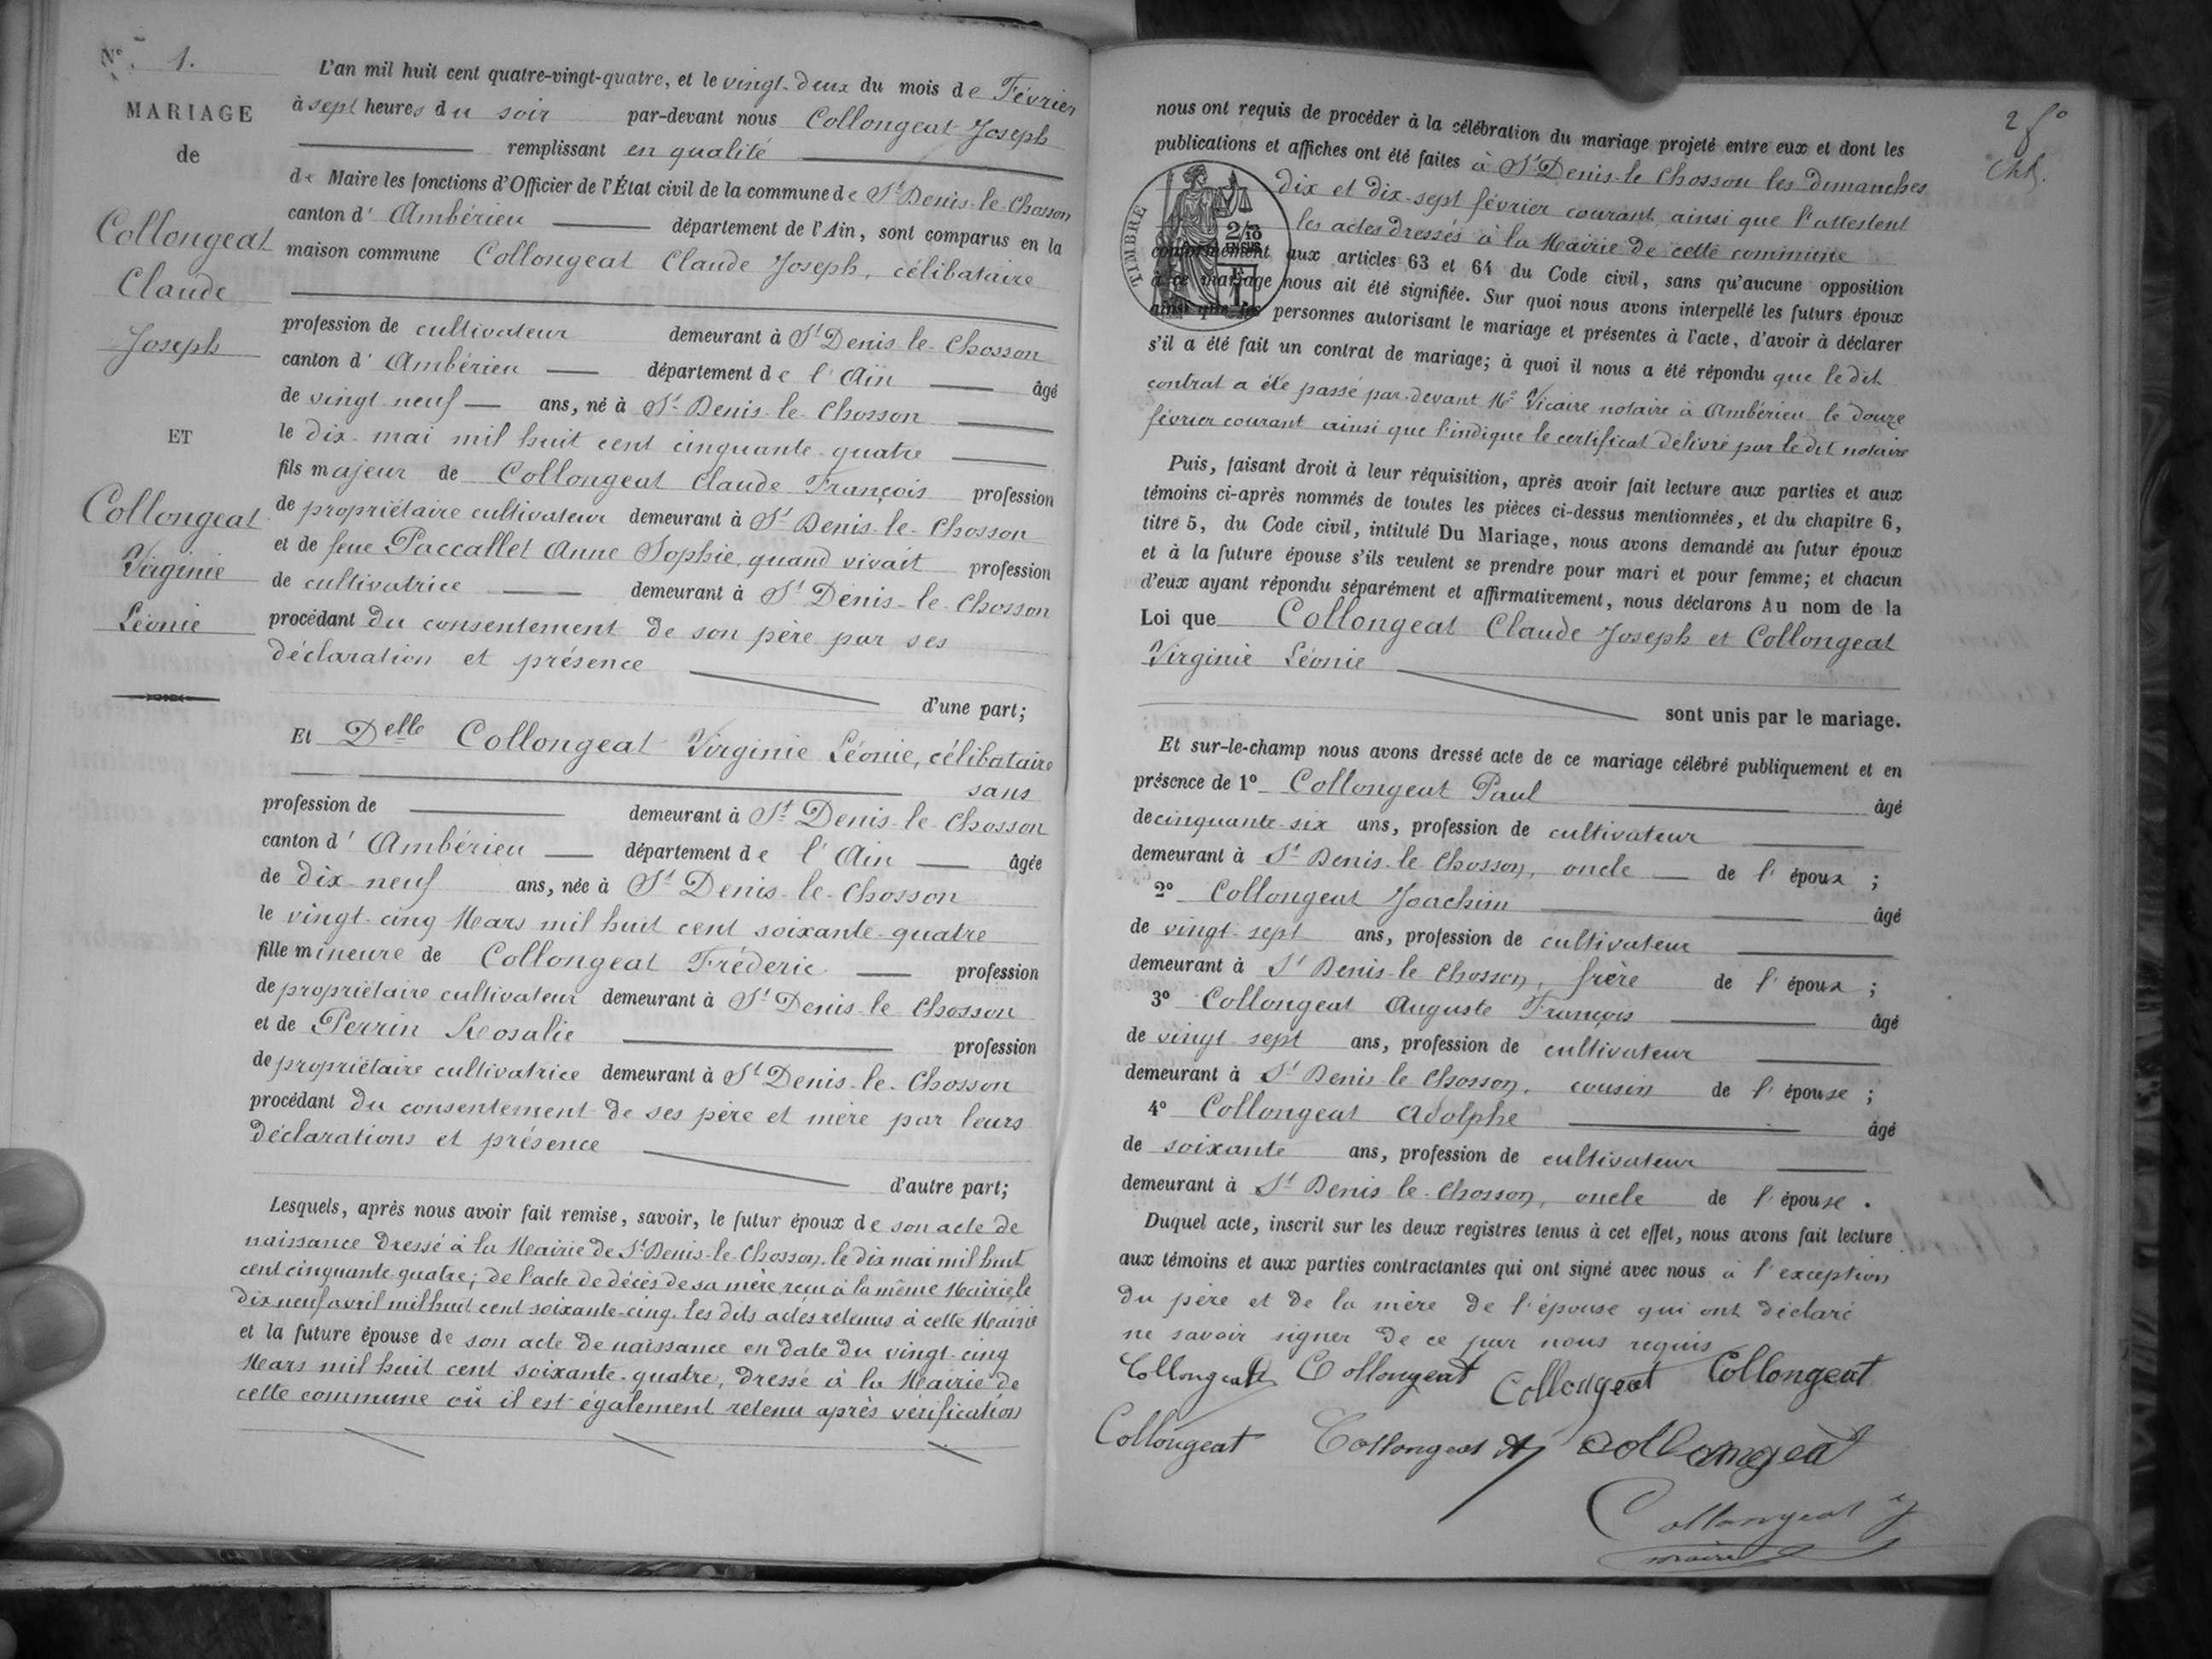 N° 1.
MARIAGE
de
Collongeat
Claude
Joseph
ET
Collongeat
Virginie
Léonie
L'an mil huit cent quatre-vingt-quatre, et le vingt-deux du mois de Février
à sept heures du soir par-devant nous Collongeat Joseph
remplissant en qualité
de Maire les fonctions d'Officier de l'État civil de la commune de St Denis-le-Chosson
canton d'Ambérieu département de l'Ain, sont comparus en la
maison commune Collongeat Claude Joseph, célibataire
profession de cultivateur demeurant à St Denis-le-Chosson
canton d'Ambérieu département de l'Ain âgé
de vingt neuf ans, né à St Denis-le-Chosson
le dix mai mil huit cent cinquante-quatre
fils majeur de Collongeat Claude François profession
de propriétaire cultivateur demeurant à St Denis-le-Chosson
et de feue Paccallet Anne Sophie, quand vivait profession
de cultivatrice demeurant à St Denis-le-Chosson
procédant du consentement de son père par ses
déclaration et présence
d'une part;
Et Delle Collongeat Virginie Léonie, célibataire
sans
profession de demeurant à St Denis-le-Chosson
canton d'Ambérieu département de l'Ain âgée
de dix neuf ans, née à St Denis-le-Chosson
le vingt-cinq Mars mil huit cent soixante-quatre
fille mineure de Collongeat Fréderic profession
de propriétaire cultivateur demeurant à St Denis-le Chosson
et de Perrin Rosalie profession
de propriétaire cultivatrice demeurant à St Denis-le-Chosson
procédant du consentement de ses père et mère par leurs
déclarations et présence
d'autre part;
Lesquels, après nous avoir fait remise, savoir, le futur époux de son acte de
naissance dressé à la Mairie de St Denis-le-Chosson, le dix mai mil huit
cent cinquante-quatre; de l'acte de décès de sa mère reçu à la même Mairie, le
dix neuf avril mil huit cent soixante-cinq. les dits actes retenus à cette Mairie
et la future épouse de son acte de naissance en date du vingt-cinq
Mars mil huit cent soixante-quatre, dressé à la Mairie de
cette commune où il est également retenu après vérification
2 fo
nous ont requis de procéder à la célébration du mariage projeté entre eux et dont les
publications et affiches ont été faites à St Denis-le Chosson les dimanches
dix et dix-sept février courant, ainsi que l'attestent
les actes dressés à la Mairie de cette commune
TIMBRE
2/10 EN SUS
conformément aux articles 63 et 64 du Code civil, sans qu'aucune opposition
à ce mariage nous ait été signifiée. Sur quoi nous avons interpellé les futurs époux
ainsi que les personnes autorisant le mariage et présentes à l'acte, d'avoir à déclarer
s'il a été fait un contrat de mariage; à quoi il nous a été répondu que le dit
contrat a été passé par-devant Me Vicaire notaire à Ambérieu le douze
février courant ainsi que l'indique le certificat délivré par le dit notaire
Puis, faisant droit à leur réquisition, après avoir fait lecture aux parties et aux
témoins ci-après nommés de toutes les pièces ci-dessus mentionnées, et du chapitre 6,
titre 5, du Code civil, intitulé Du Mariage, nous avons demandé au futur époux
et à la future épouse s'ils veulent se prendre pour mari et pour femme; et chacun
d'eux ayant répondu séparément et affirmativement, nous déclarons Au nom de la
Loi que Collongeat Claude Joseph et Collongeat
Virginie Léonie
sont unis par le mariage.
Et sur-le-champ nous avons dressé acte de ce mariage célébré publiquement et en
présence de 1° Collongeat Paul âgé
de cinquante-six ans, profession de cultivateur
demeurant à St Denis-le Chosson, oncle de l'époux ;
2° Collongeat Joachim âgé
de vingt-sept ans, profession de cultivateur
demeurant à St Denis-le Chosson, frère de l'époux ;
3° Collongeat Auguste François âgé
de vingt sept ans, profession de cultivateur
demeurant à St Denis-le Chosson, cousin de l'épouse ;
4° Collongeat Adolphe âgé
de soixante ans, profession de cultivateur
demeurant à St Denis le-Chosson, oncle de l'épouse.
Duquel acte, inscrit sur les deux registres tenus à cet effet, nous avons fait lecture
aux témoins et aux parties contractantes qui ont signé avec nous à l'exception
du père et de la mère de l'épouse qui ont déclaré
ne savoir signer de ce par nous requis
Collongeat Collongeat Collongeat Collongeat
Collongeat Collongeat A Collongeat
Collongeat J
maire